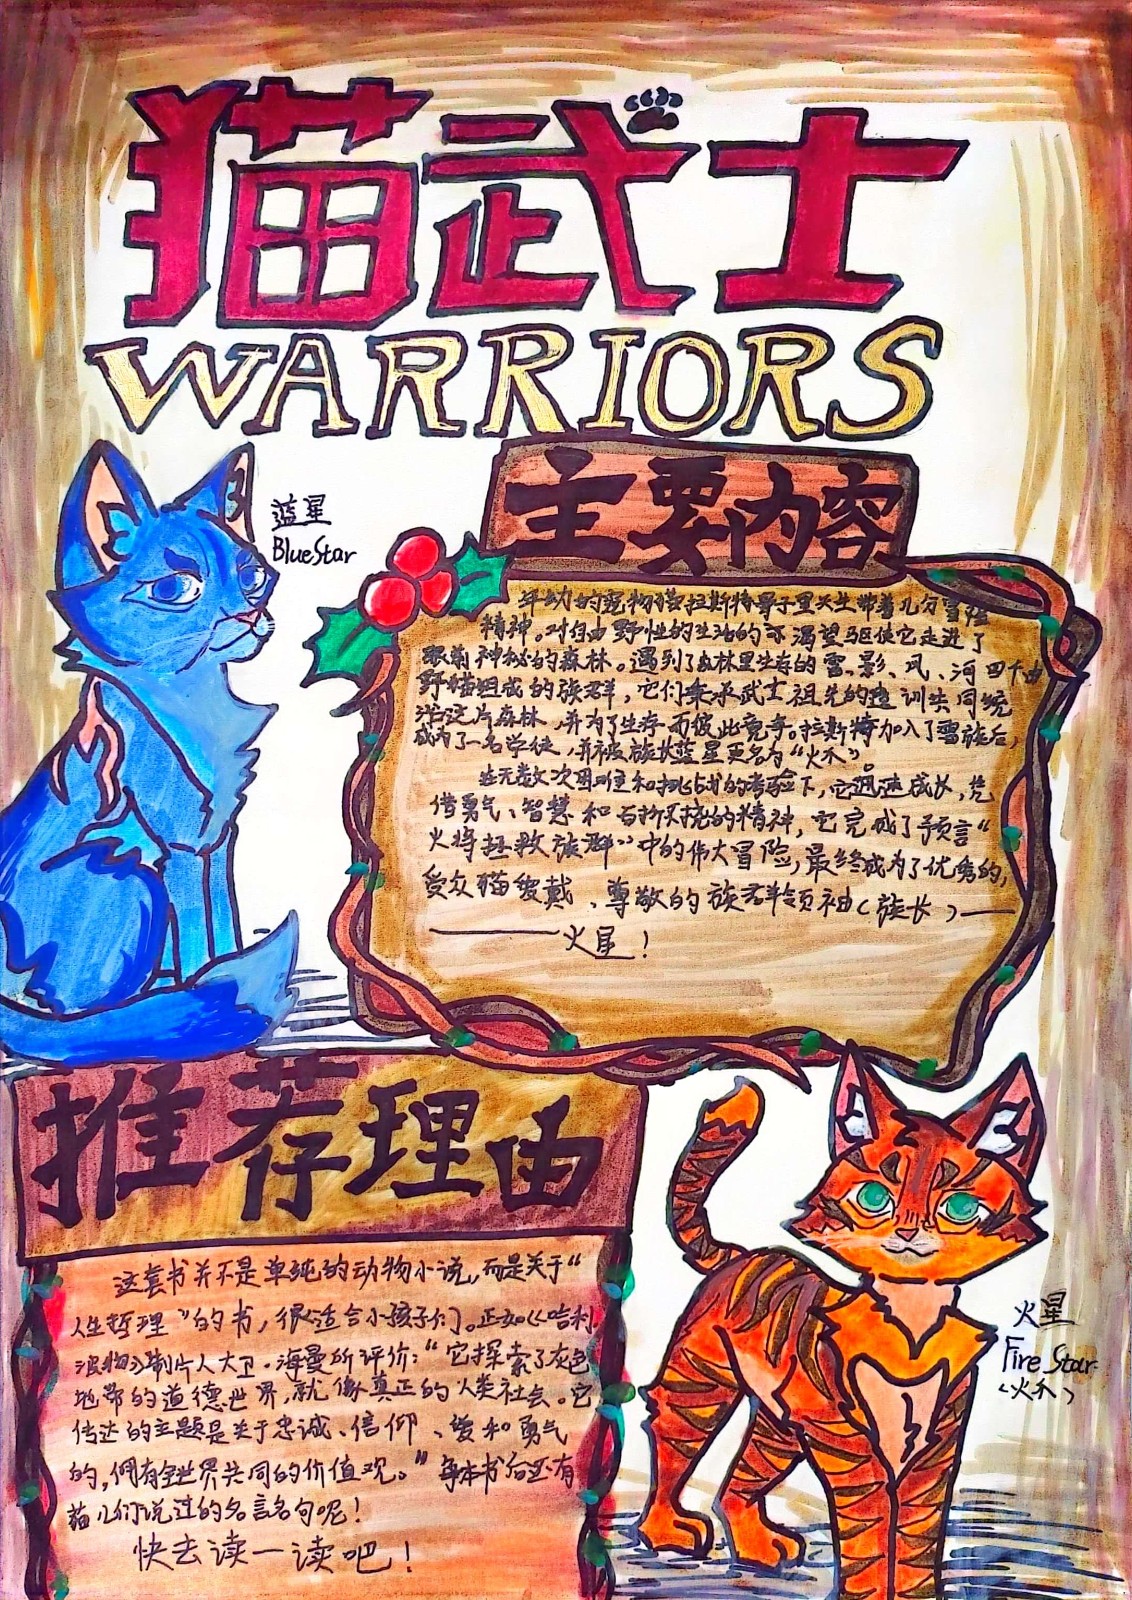 猫武士
WARRIORS
蓝星
BlueStar
主要内容
年幼的宠物猫拉斯特骨子里天生带着几分冒险
精神。对自由野性的生活的渴望驱使它走进了
眼前神秘的森林。遇到了森林里生存的雷、影、风、河四个由
野猫组成的族群，它们秉承武士祖先的遗训共同统
治这片森林，并为了生存而彼此竞争。拉斯特加入了雷族后，
成为了一名学徒，并被族长蓝星更名为“火爪”。
在无数次困难和挑战的考验下，它迅速成长，凭
借勇气、智慧和百折不挠的精神，它完成了预言“
火将拯救族群”中的伟大冒险，最终成为了优秀的，
受众猫爱戴、尊敬的族群领袖（族长）——
——火星！
推荐理由
这套书并不是单纯的动物小说，而是关于“
人生哲理”的书，很适合小孩子们。正如《哈利
波特》制片人大卫·海曼所评价：“它探索了灰色
地带的道德世界，就像真正的人类社会。它
传达的主题是关于忠诚、信仰、爱和勇气
的，拥有全世界共同的价值观。”每本书后还有
猫儿们说过的名言名句呢！
快去读一读吧！
火星
Fire Star
（火爪）